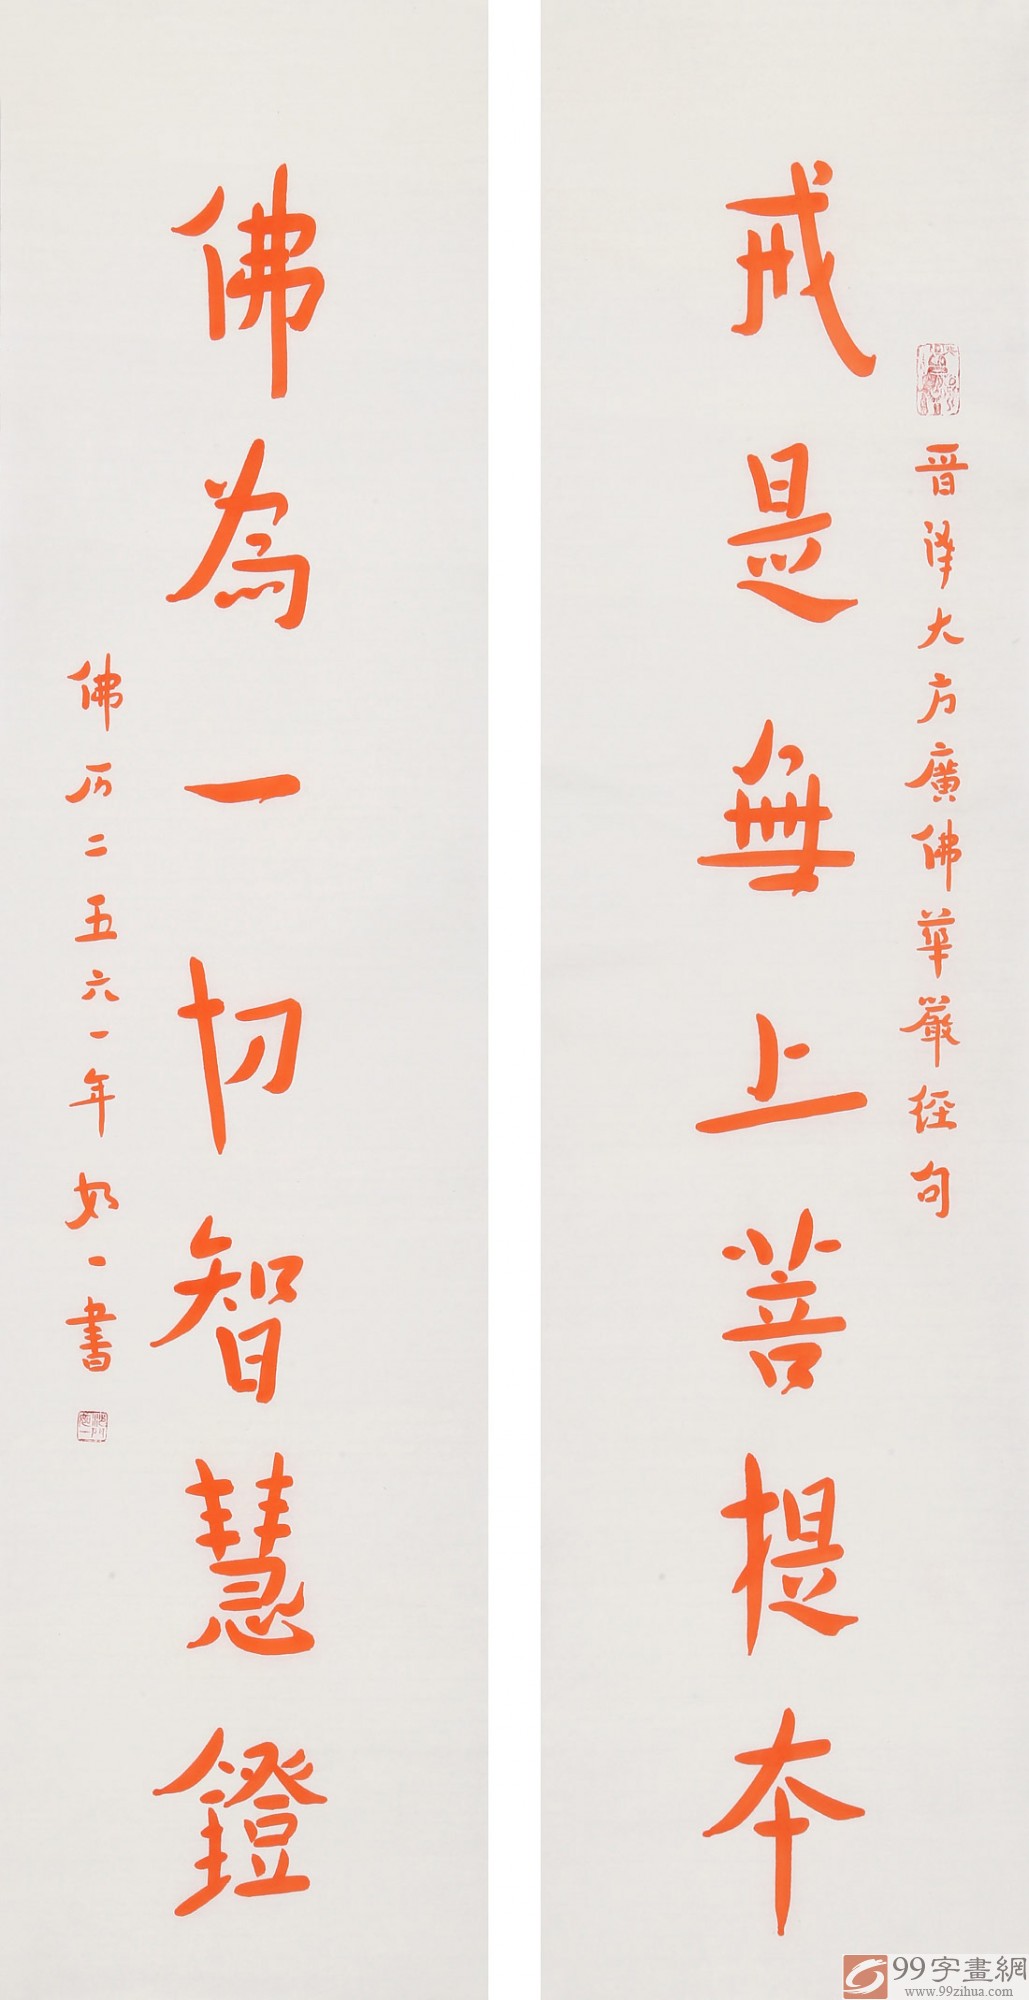 晋译大方廣佛華嚴经句
戒是無上菩提本
佛為一切智慧鐙
佛历二五六一年如一書
99字畫網
www.99zihua.com